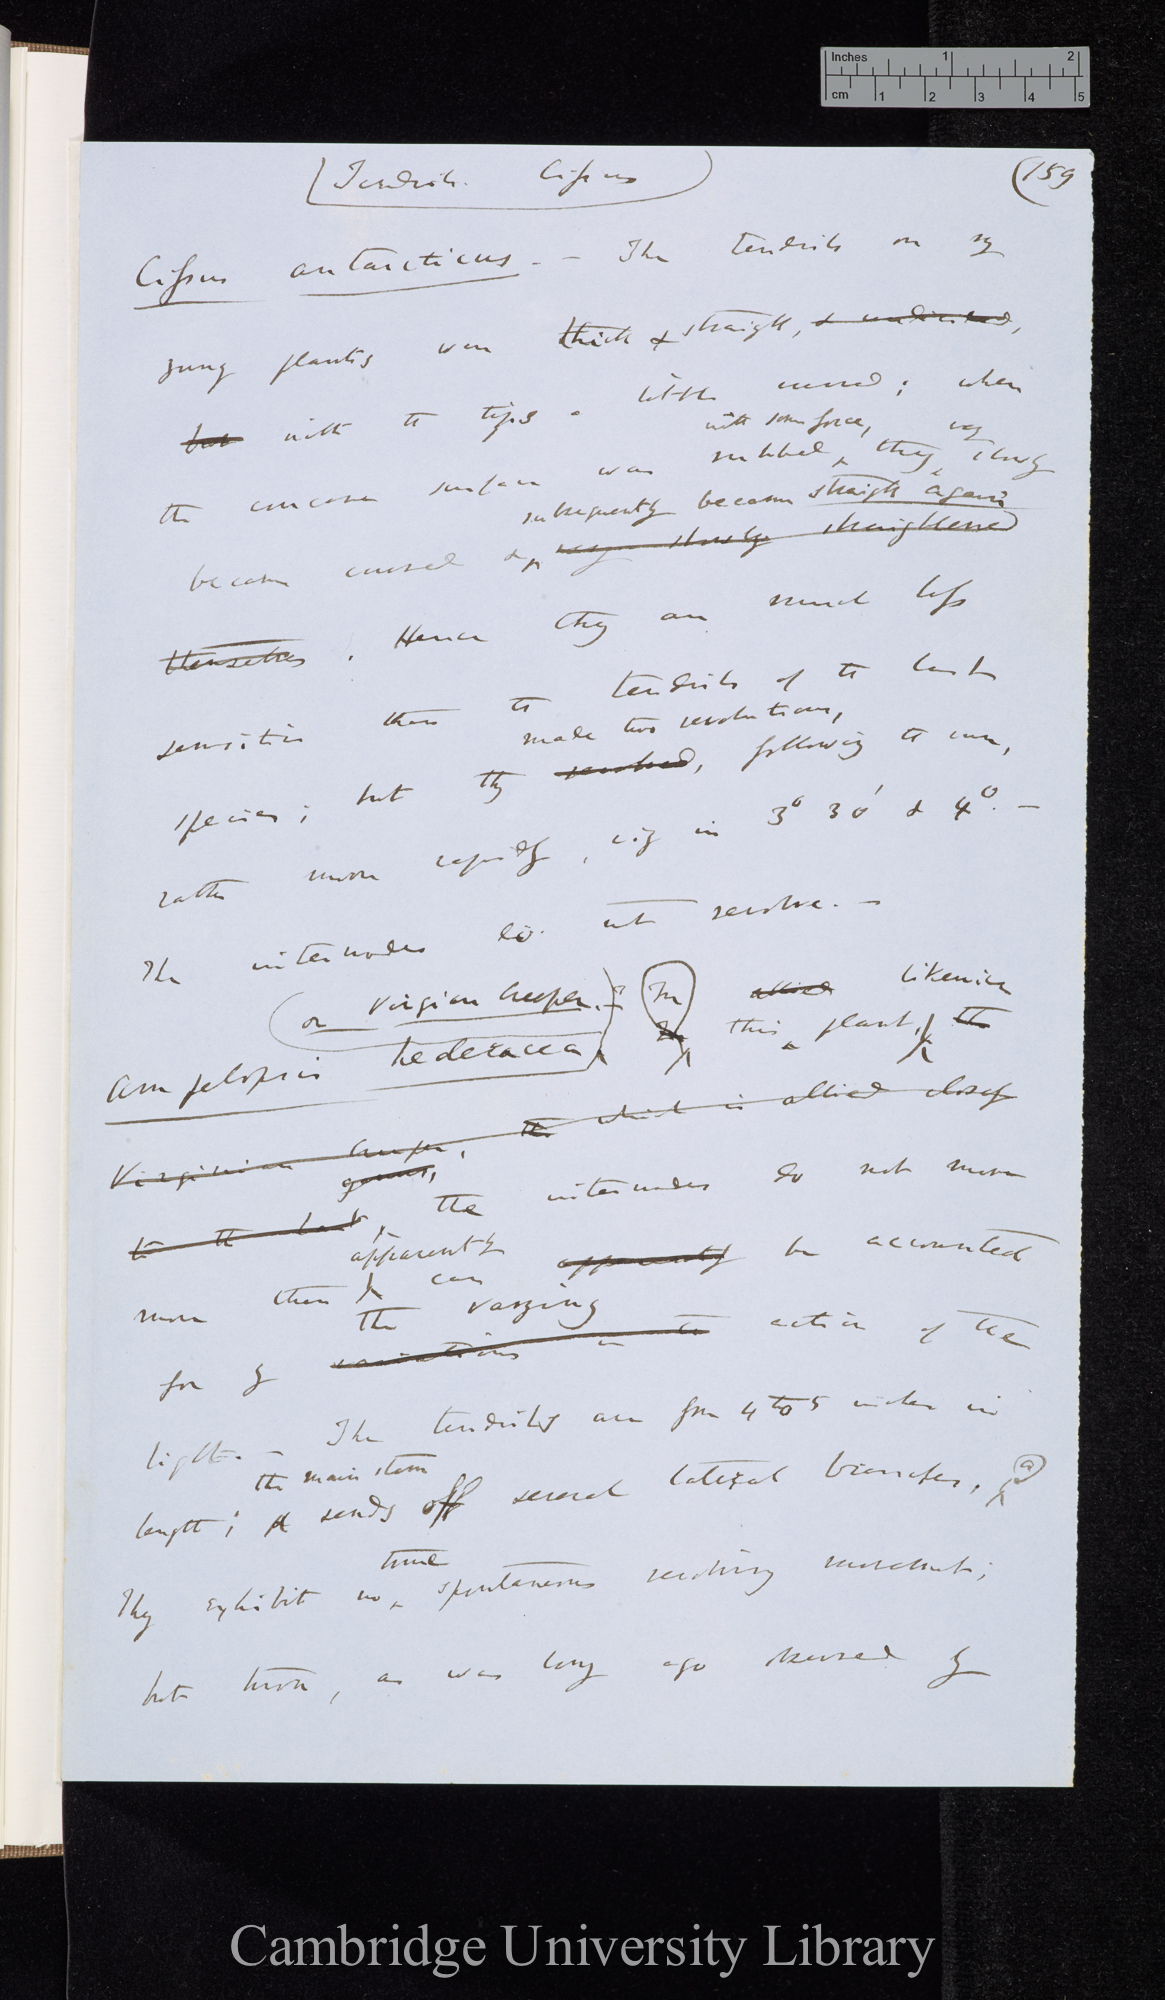 Inches 1 2
cm 1 2 3 4 5
(Tendrils. Cissus) (159
Cissus antarcticus. — The tendrils on my
young plants were thick & straight, & undivided,
but with the tips a little curved; when
with some force, very
the concave surface was rubbed, they slowly
subsequently became straight again
became curved & very slowly straightened
themselves. Hence they are much less
sensitive than the tendrils of the last
made two revolutions,
species; but they revolved, following the sun,
rather more rapidly, viz in 3° 30' & 4°. —
The internodes do not revolve. —
(or Virgian Creeper.)
Ampelopsis hederacea In allied likewise
In this plant, the
Virginian Creeper, the which is allied closely
genus,
to the last, the internodes do not move
apparently
more than can apparently be accounted
the varying
for by variations in the action of the
light. — The tendrils are from 4 to 5 inches in
the main stem
length; it sends off several lateral branches, (a)
true
They exhibit no spontaneous revolving movement;
but turn, as was long ago observed by
Cambridge University Library